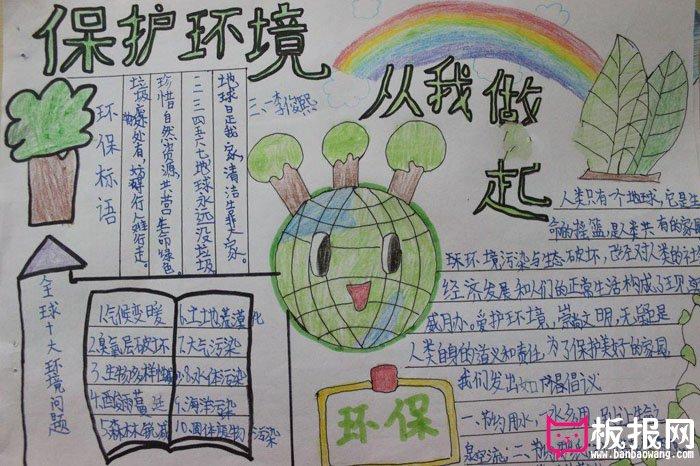 保护环境
从我做起
三、李俊熙
环保标语
垃圾散处处有,妨碍行人难行走。
珍惜自然资源,共营生命绿色。
一二三四五六七地球永远没垃圾
地球是我家,清洁靠大家。
全球十大环境问题
1.气候变暖
2.臭氧层破坏
3.生物多样性
4.酸雨蔓延
5.森林锐减
6.土地荒漠化
7.大气污染
8.水体污染
9.海洋污染
10.固体废物污染
环保
人类只有一个地球,它是生
命的摇篮,是人类共有的家园
球环境污染与生态破坏,已经对人类的社
经济发展和人们的正常生活构成了现实
威胁。爱护环境,崇尚文明,无疑是
人类自身的意义和责任,为了保护美好的家园,
我们发出如下倡议
一、节约用水,一水多用
泉空流;二、节约
板报网
www.banbaowang.com